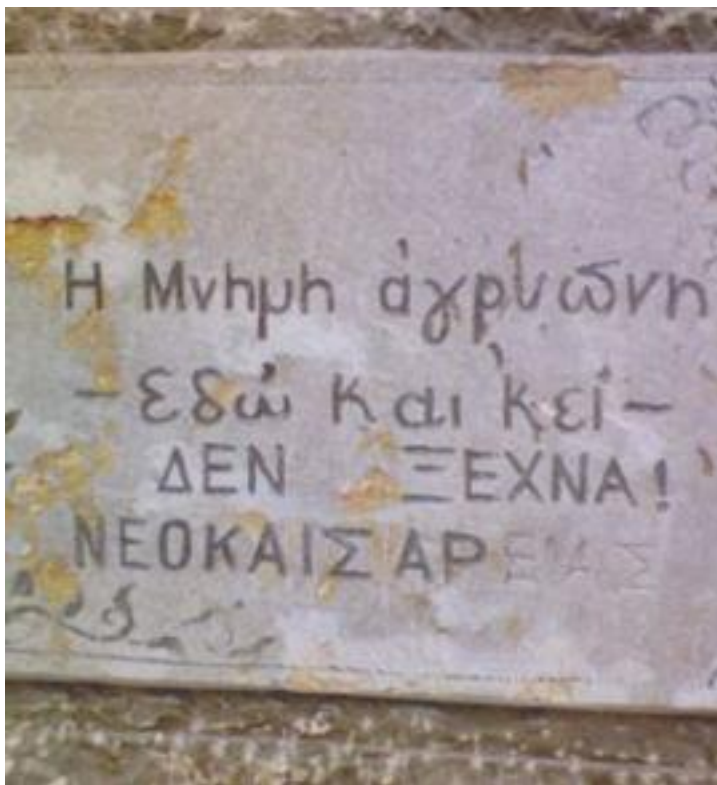 Η Μνημη ἀγρυπνη
- Εδώ και 'κεί -
ΔΕΝ ΞΕΧΝΑ!
ΝΕΟΚΑΙΣΑΡΕΙΑΣ